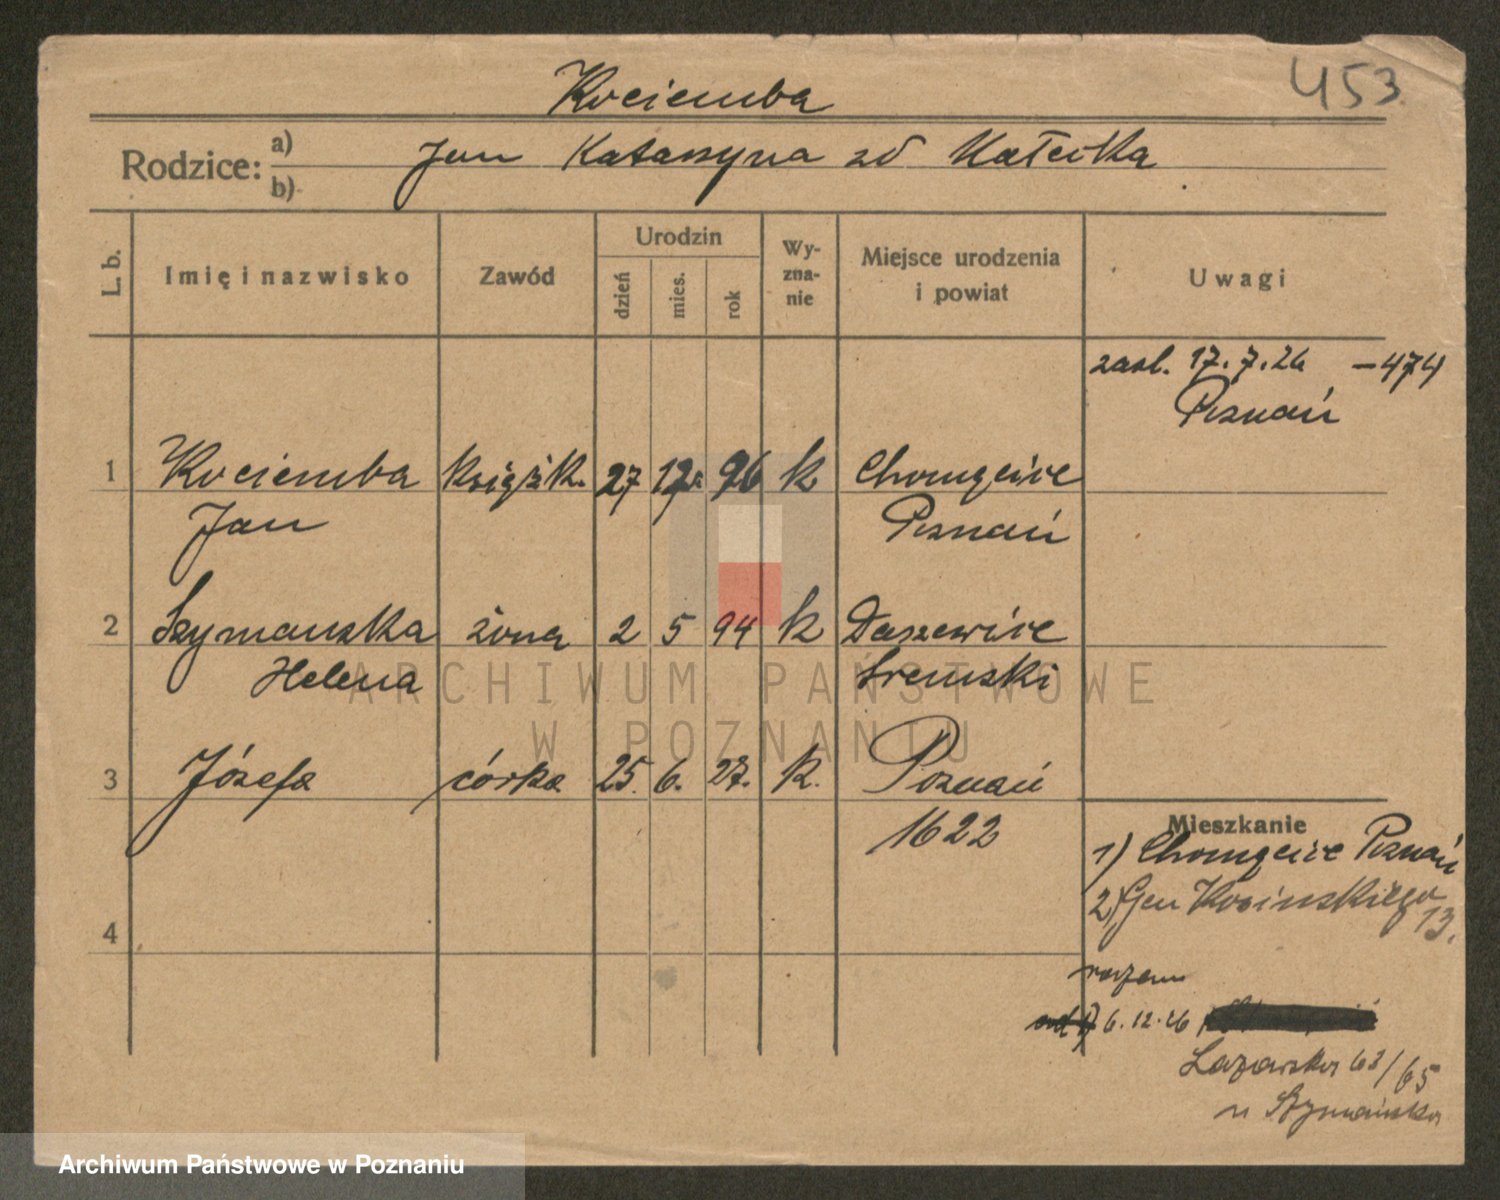 453
Kociemba
Rodzice: a) b) Jan Katarzyna zd Małecka
L. b. Imię i nazwisko Zawód Urodzin dzień mies. rok Wyznanie Miejsce urodzenia i powiat Uwagi
zaśl. 17.7.26 – 474
Poznań
1 Kociemba książk. 27 12 96 k Chomęcice
Jan Poznań
2 Szymańska żona 2 5 94 k Daszewice
Helena Śremski
3 Józefa córka 25. 6. 27. k. Poznań
1622
Mieszkanie
1) Chomęcice Poznań
2) Gen Kosińskiego
13.
4
razem
6.12.26
Łazarska 63/65
u Szymańska
ARCHIWUM PAŃSTWOWE
W POZNANIU
Archiwum Państwowe w Poznaniu